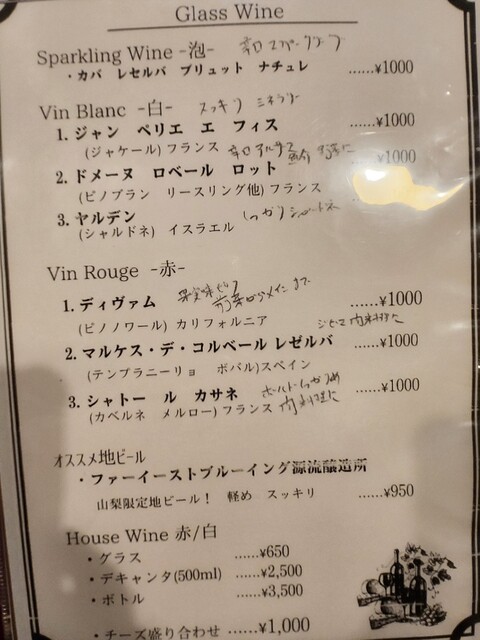 Glass Wine
Sparkling Wine -泡- 辛口スパークリング
・カバ レセルバ ブリュット ナチュレ ......¥1000
Vin Blanc -白- スッキリ ミネラリー
1. ジャン ペリエ エ フィス ......¥1000
(ジャケール) フランス 辛口
2. ドメーヌ ロベール ロット ......¥1000
(ピノブラン リースリング他) フランス
3. ヤルデン しっかり シャルドネ
(シャルドネ) イスラエル
Vin Rouge -赤-
1. ディヴァム 果実味 前菜からメインまで ......¥1000
(ピノノワール) カリフォルニア
2. マルケス・デ・コルベール レゼルバ ......¥1000
(テンプラニーリョ ボバル)スペイン
3. シャトー ル カサネ 肉料理に ......¥1000
(カベルネ メルロー) フランス
オススメ地ビール
・ファーイーストブルーイング源流醸造所
山梨限定地ビール！ 軽め スッキリ ......¥950
House Wine 赤/白
・グラス ......¥650
・デキャンタ(500ml) ......¥2,500
・ボトル ......¥3,500
・チーズ盛り合わせ ......¥1,000